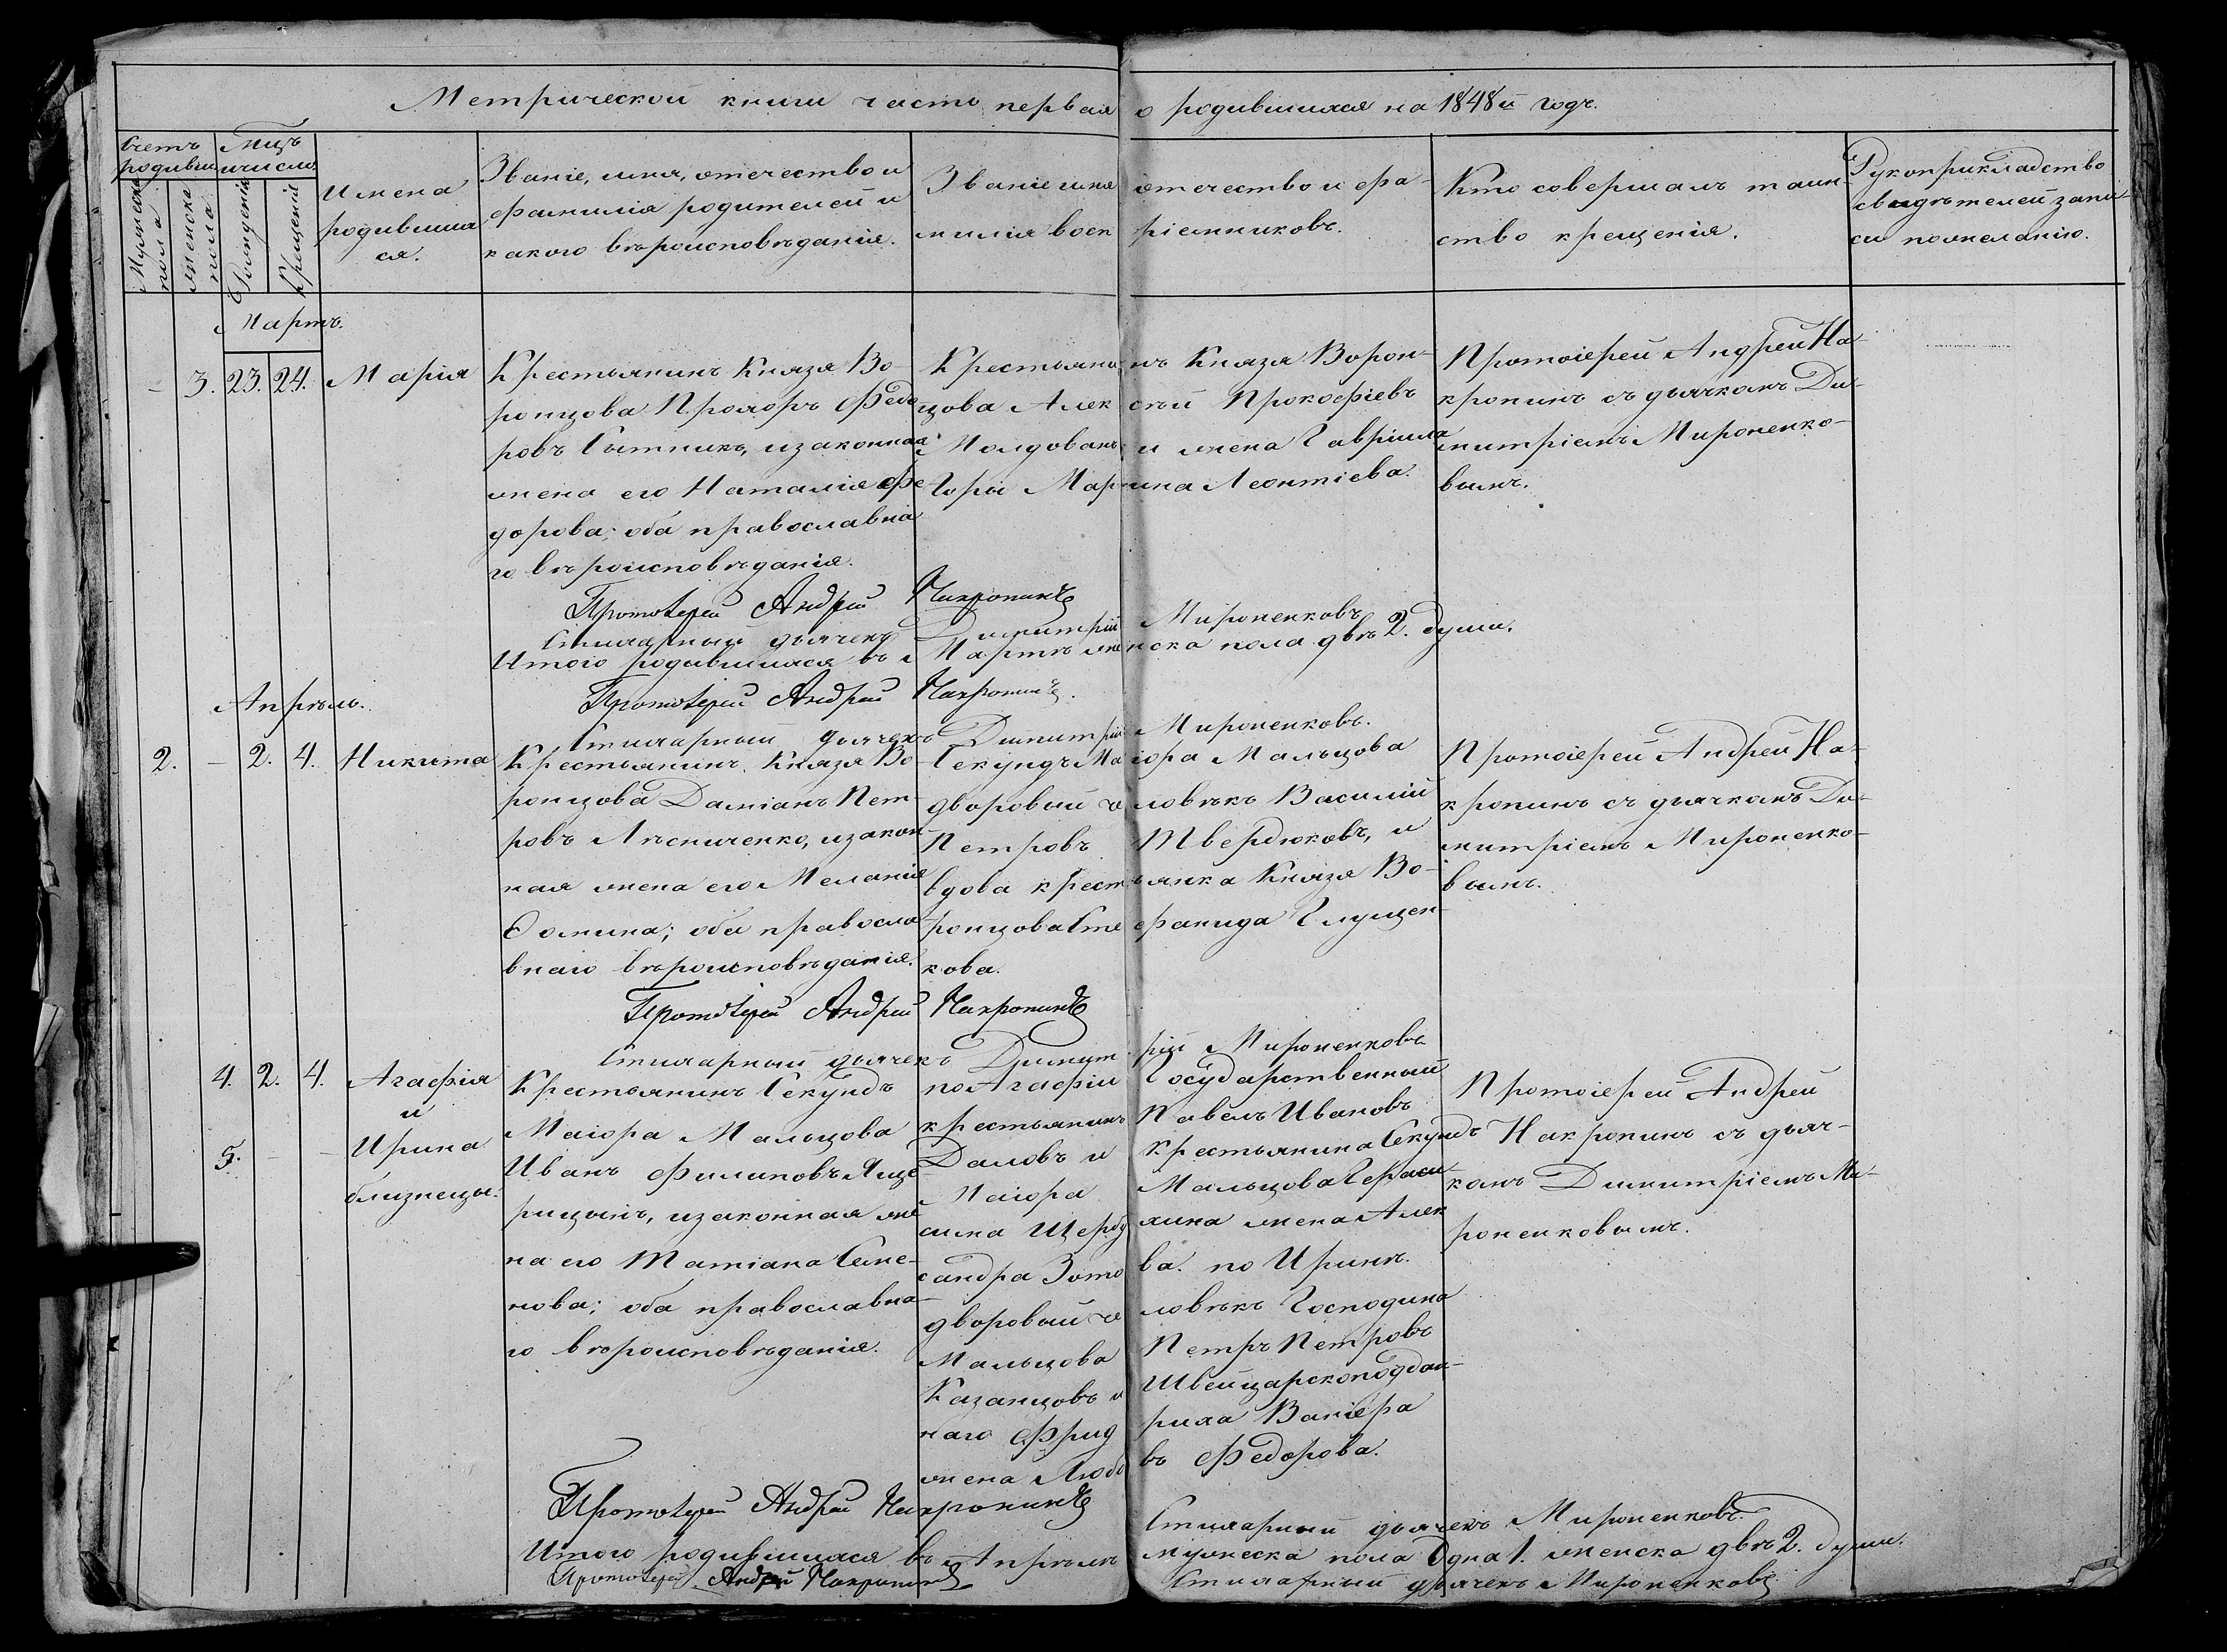 Метрической книги часть первая о родившихся на 1848й годъ.
Счетъ родивш.
Мцъ и число
Мужеска пола
женска пола
Рожденія
Крещенія
Имена
родивших
ся.
Званіе, имя, отечество и
фамилія родителей и
какого вѣроисповѣданія.
Званіе имя отечество и фа-
милія воспріемниковъ.
Кто совершалъ таин-
ство крещенія.
Рукоприкладство
свидѣтелей запи-
си по желанію.
Мартъ.
– 3. 23. 24. Марія
Крестьянинъ Князя Во-
ронцова Прохоръ Федо
ровъ Сытникъ, и законная
жена его Наталія Фе
дорова; оба православна
го вѣроисповѣданія.
Крестьянинъ Князя Ворон-
цова Алексѣй Прокофіевъ
Молдованъ и жена Гавріила
Горы Марина Леонтіева.
Протоіерей Андрей На-
кропинъ съ дьячкомъ Ди-
митріемъ Мироненко-
вымъ.
Протоіерей Андрей Накропинъ
Стихарный дьячекъ Димитрій Мироненковъ
Итого родившихся въ Мартѣ женска пола двѣ 2. души.
Протоіерей Андрей Накропинъ.
Стихарный дьячекъ Димитрій Мироненковъ.
Апрѣль.
2. – 2. 4. Никита
Крестьянинъ Князя Во
ронцова Даміанъ Пет-
ровъ Лѣсниченко, и закон
ная жена его Меланія
Фомина; оба правосла
внаго вѣроисповѣданія.
Секундъ Маіора Мальцова
дворовый человѣкъ Василій
Петровъ Твердюковъ, и
вдова крестьянка Князя Во-
ронцова Стефанида Глущен-
кова.
Протоіерей Андрей На-
кропинъ съ дьячкомъ Ди-
митріемъ Мироненко-
вымъ.
Протоіерей Андрей Накропинъ
Стихарный дьячекъ Димитрій Мироненковъ
4. 2. 4. Агафія
и
5. – – Ирина
близнецы.
Крестьянинъ Секундъ
Маіора Мальцова
Иванъ Филиповъ Яще
рицынъ, и законная же
на его Татіана Семе-
нова; оба православна-
го вѣроисповѣданія.
по Агафіи Государственный
крестьянинъ Павелъ Ивановъ
Даловъ и крестьянина Секундъ
Маіора Мальцова Гераси
жена Алек
сандра Зотова. по Иринѣ.
дворовый человѣкъ Господина
Мальцова Петръ Петровъ
Казанцовъ и Швейцарскоподдан-
наго Фридриха Ваніера
жена Любовь Федорова.
Протоіерей Андрей
Накропинъ съ дьяч-
комъ Димитріемъ Ми-
роненковымъ.
Протоіерей Андрей Накропинъ
Стихарный дьячекъ Мироненковъ.
Итого родившихся въ Апрѣлѣ мужеска пола одна 1. женска двѣ 2. души.
Протоіерей Андрей Накропинъ
Стихарный дьячекъ Мироненковъ